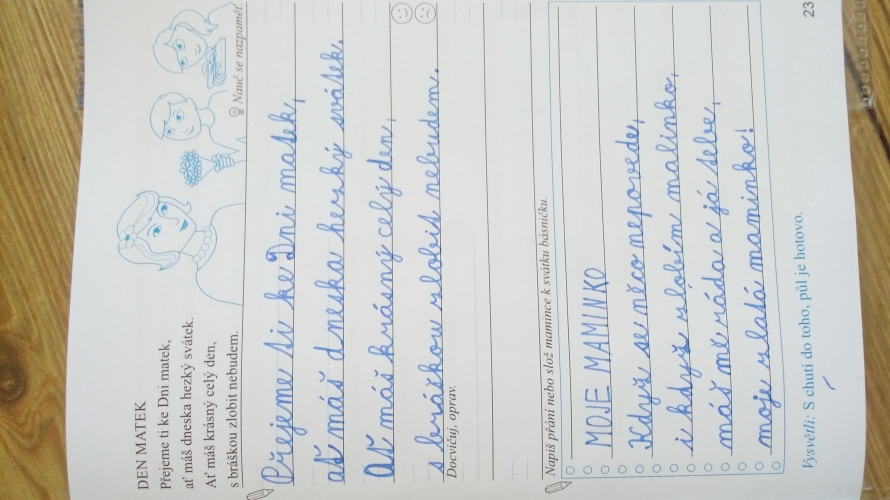 DEN MATEK
Přejeme ti ke Dni matek,
ať máš dneska hezký svátek.
Ať máš krásný celý den,
s bráškou zlobit nebudem.
Nauč se nazpaměť.
Přejeme ti ke Dni matek,
ať máš dneska hezký svátek.
Ať máš krásný celý den,
s bráškou zlobit nebudem.
Docvičuj, oprav.
Napiš přání nebo slož mamince k svátku básničku.
MOJE MAMINKO
Když se něco nepovede,
i když zlobím malinko,
máš mě ráda a já tebe,
moje zlatá maminko!
Vysvětli: S chutí do toho, půl je hotovo.
23